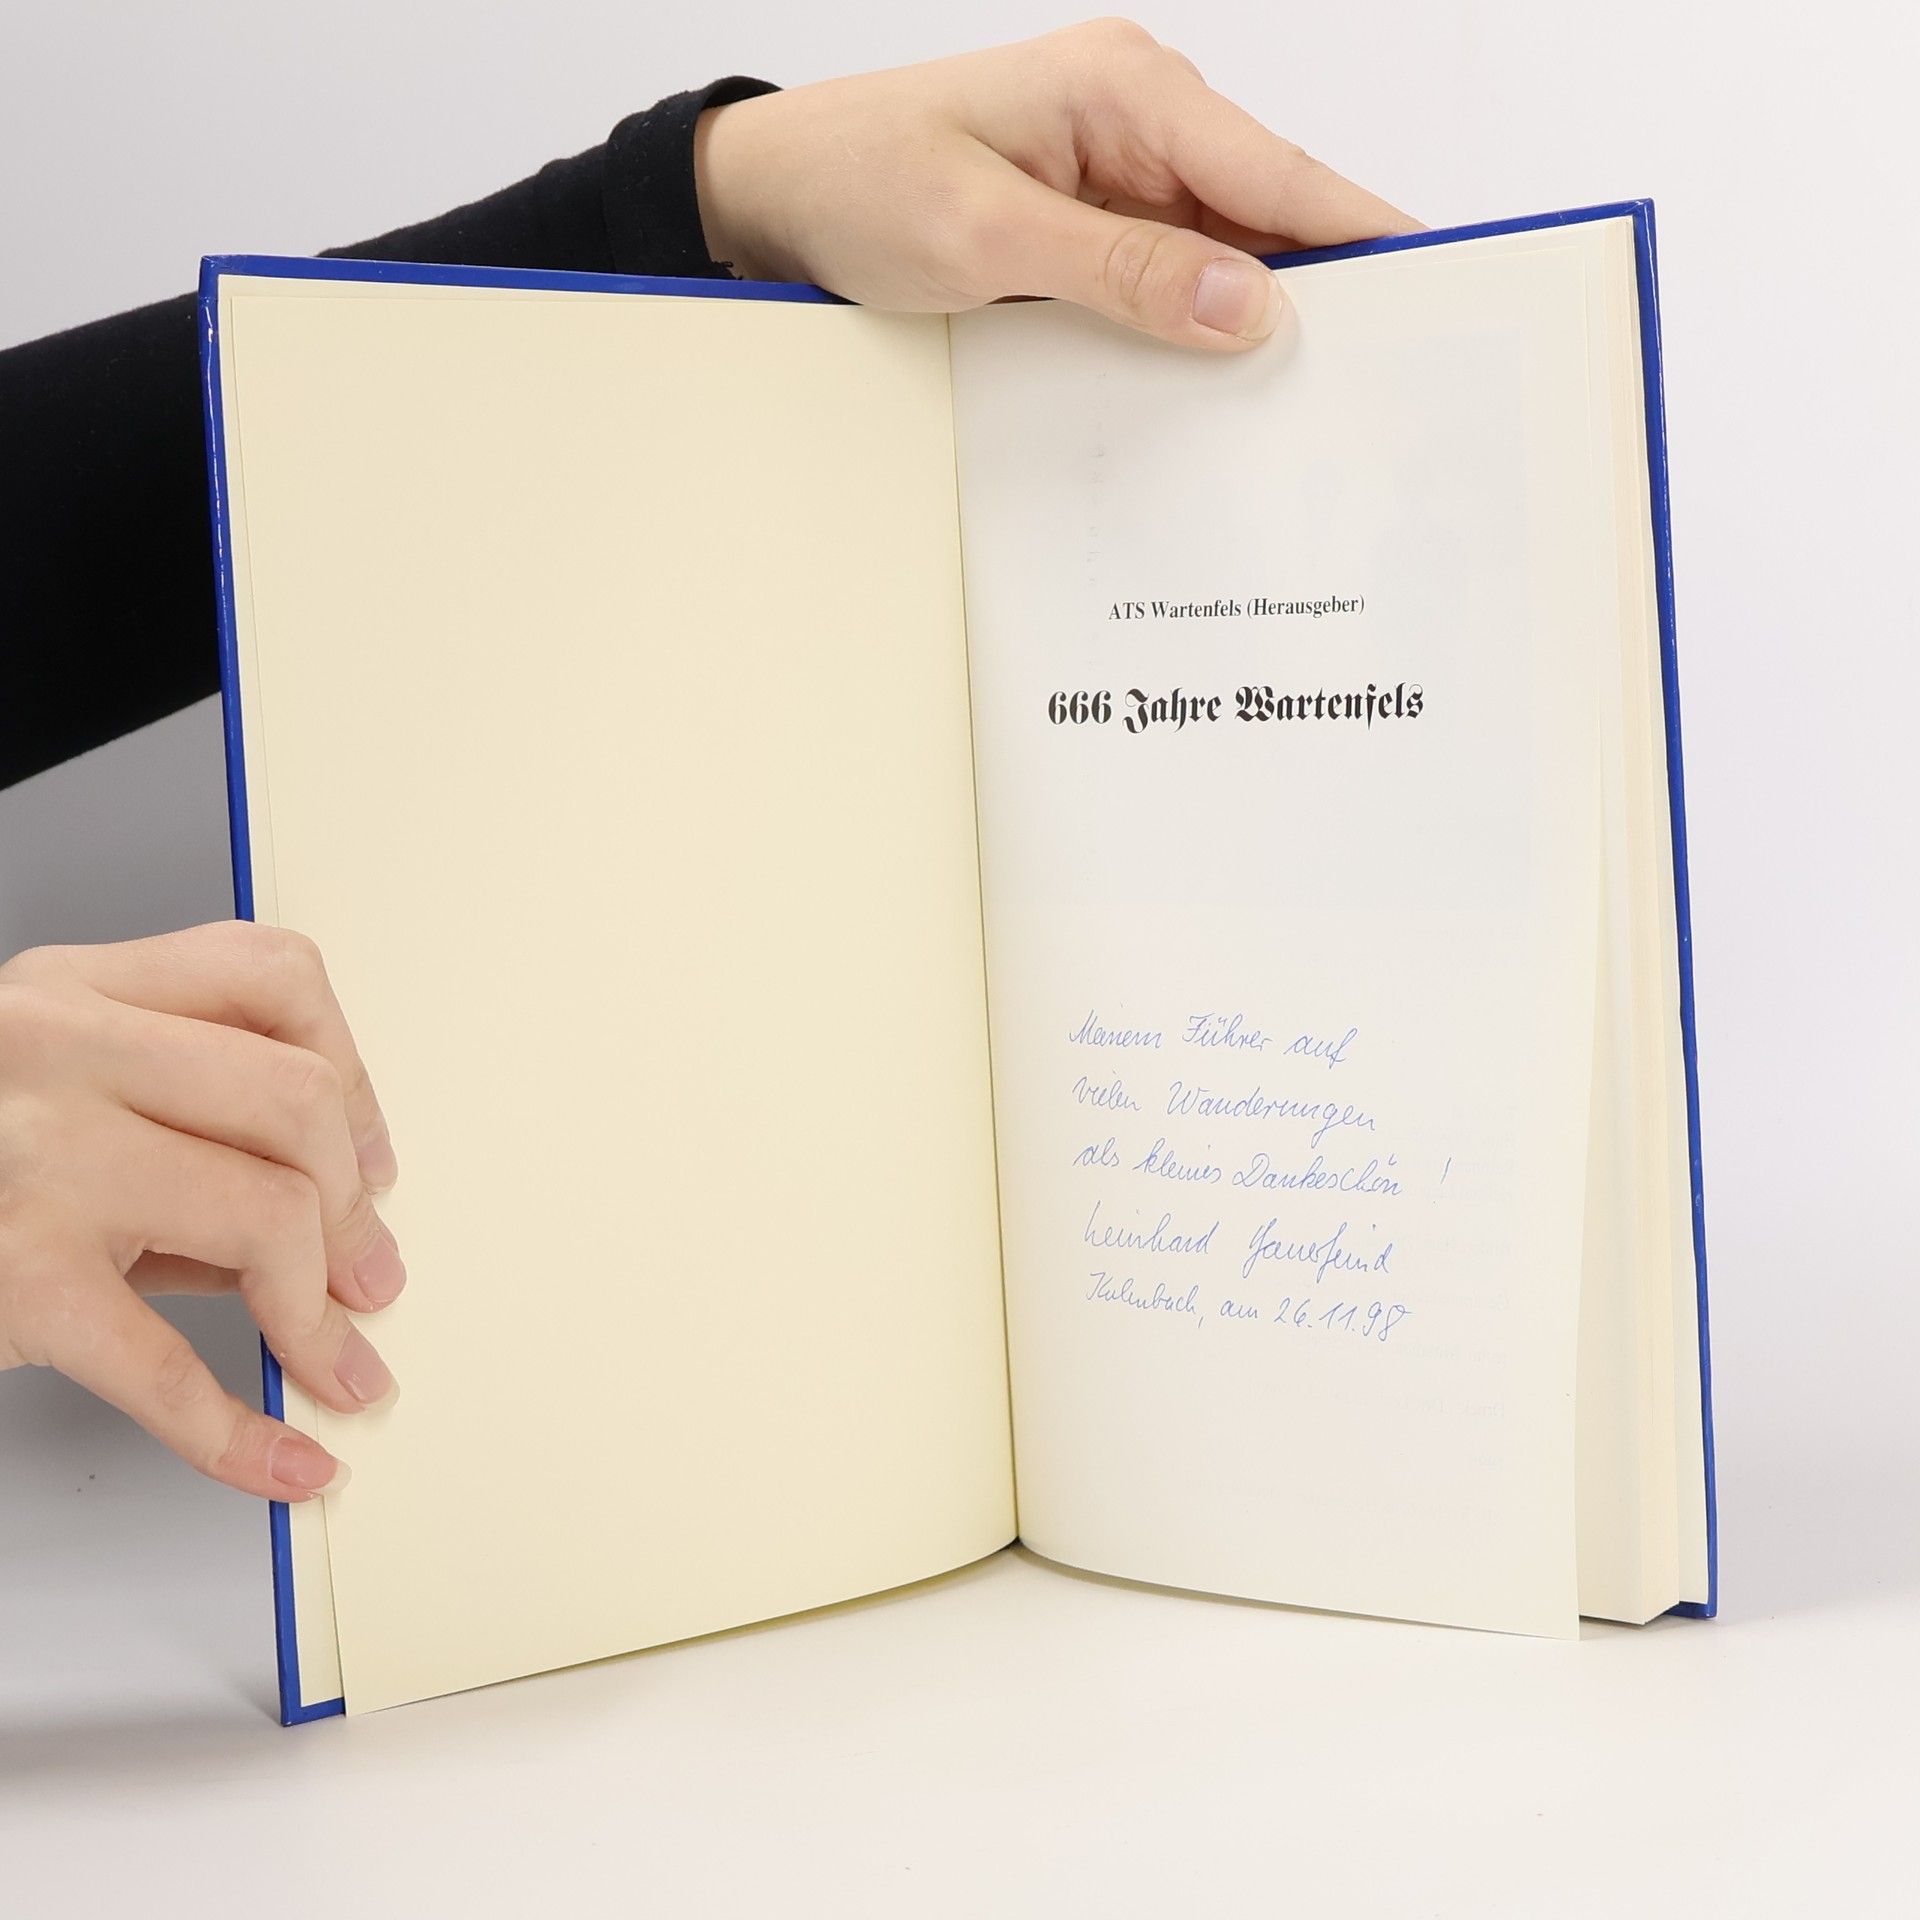 ATS Wartenfels (Herausgeber)
666 Jahre Wartenfels
Meinem Führer auf
vielen Wanderungen
als kleines Dankeschön !
Leinhard
Kulmbach, am 26.11.98